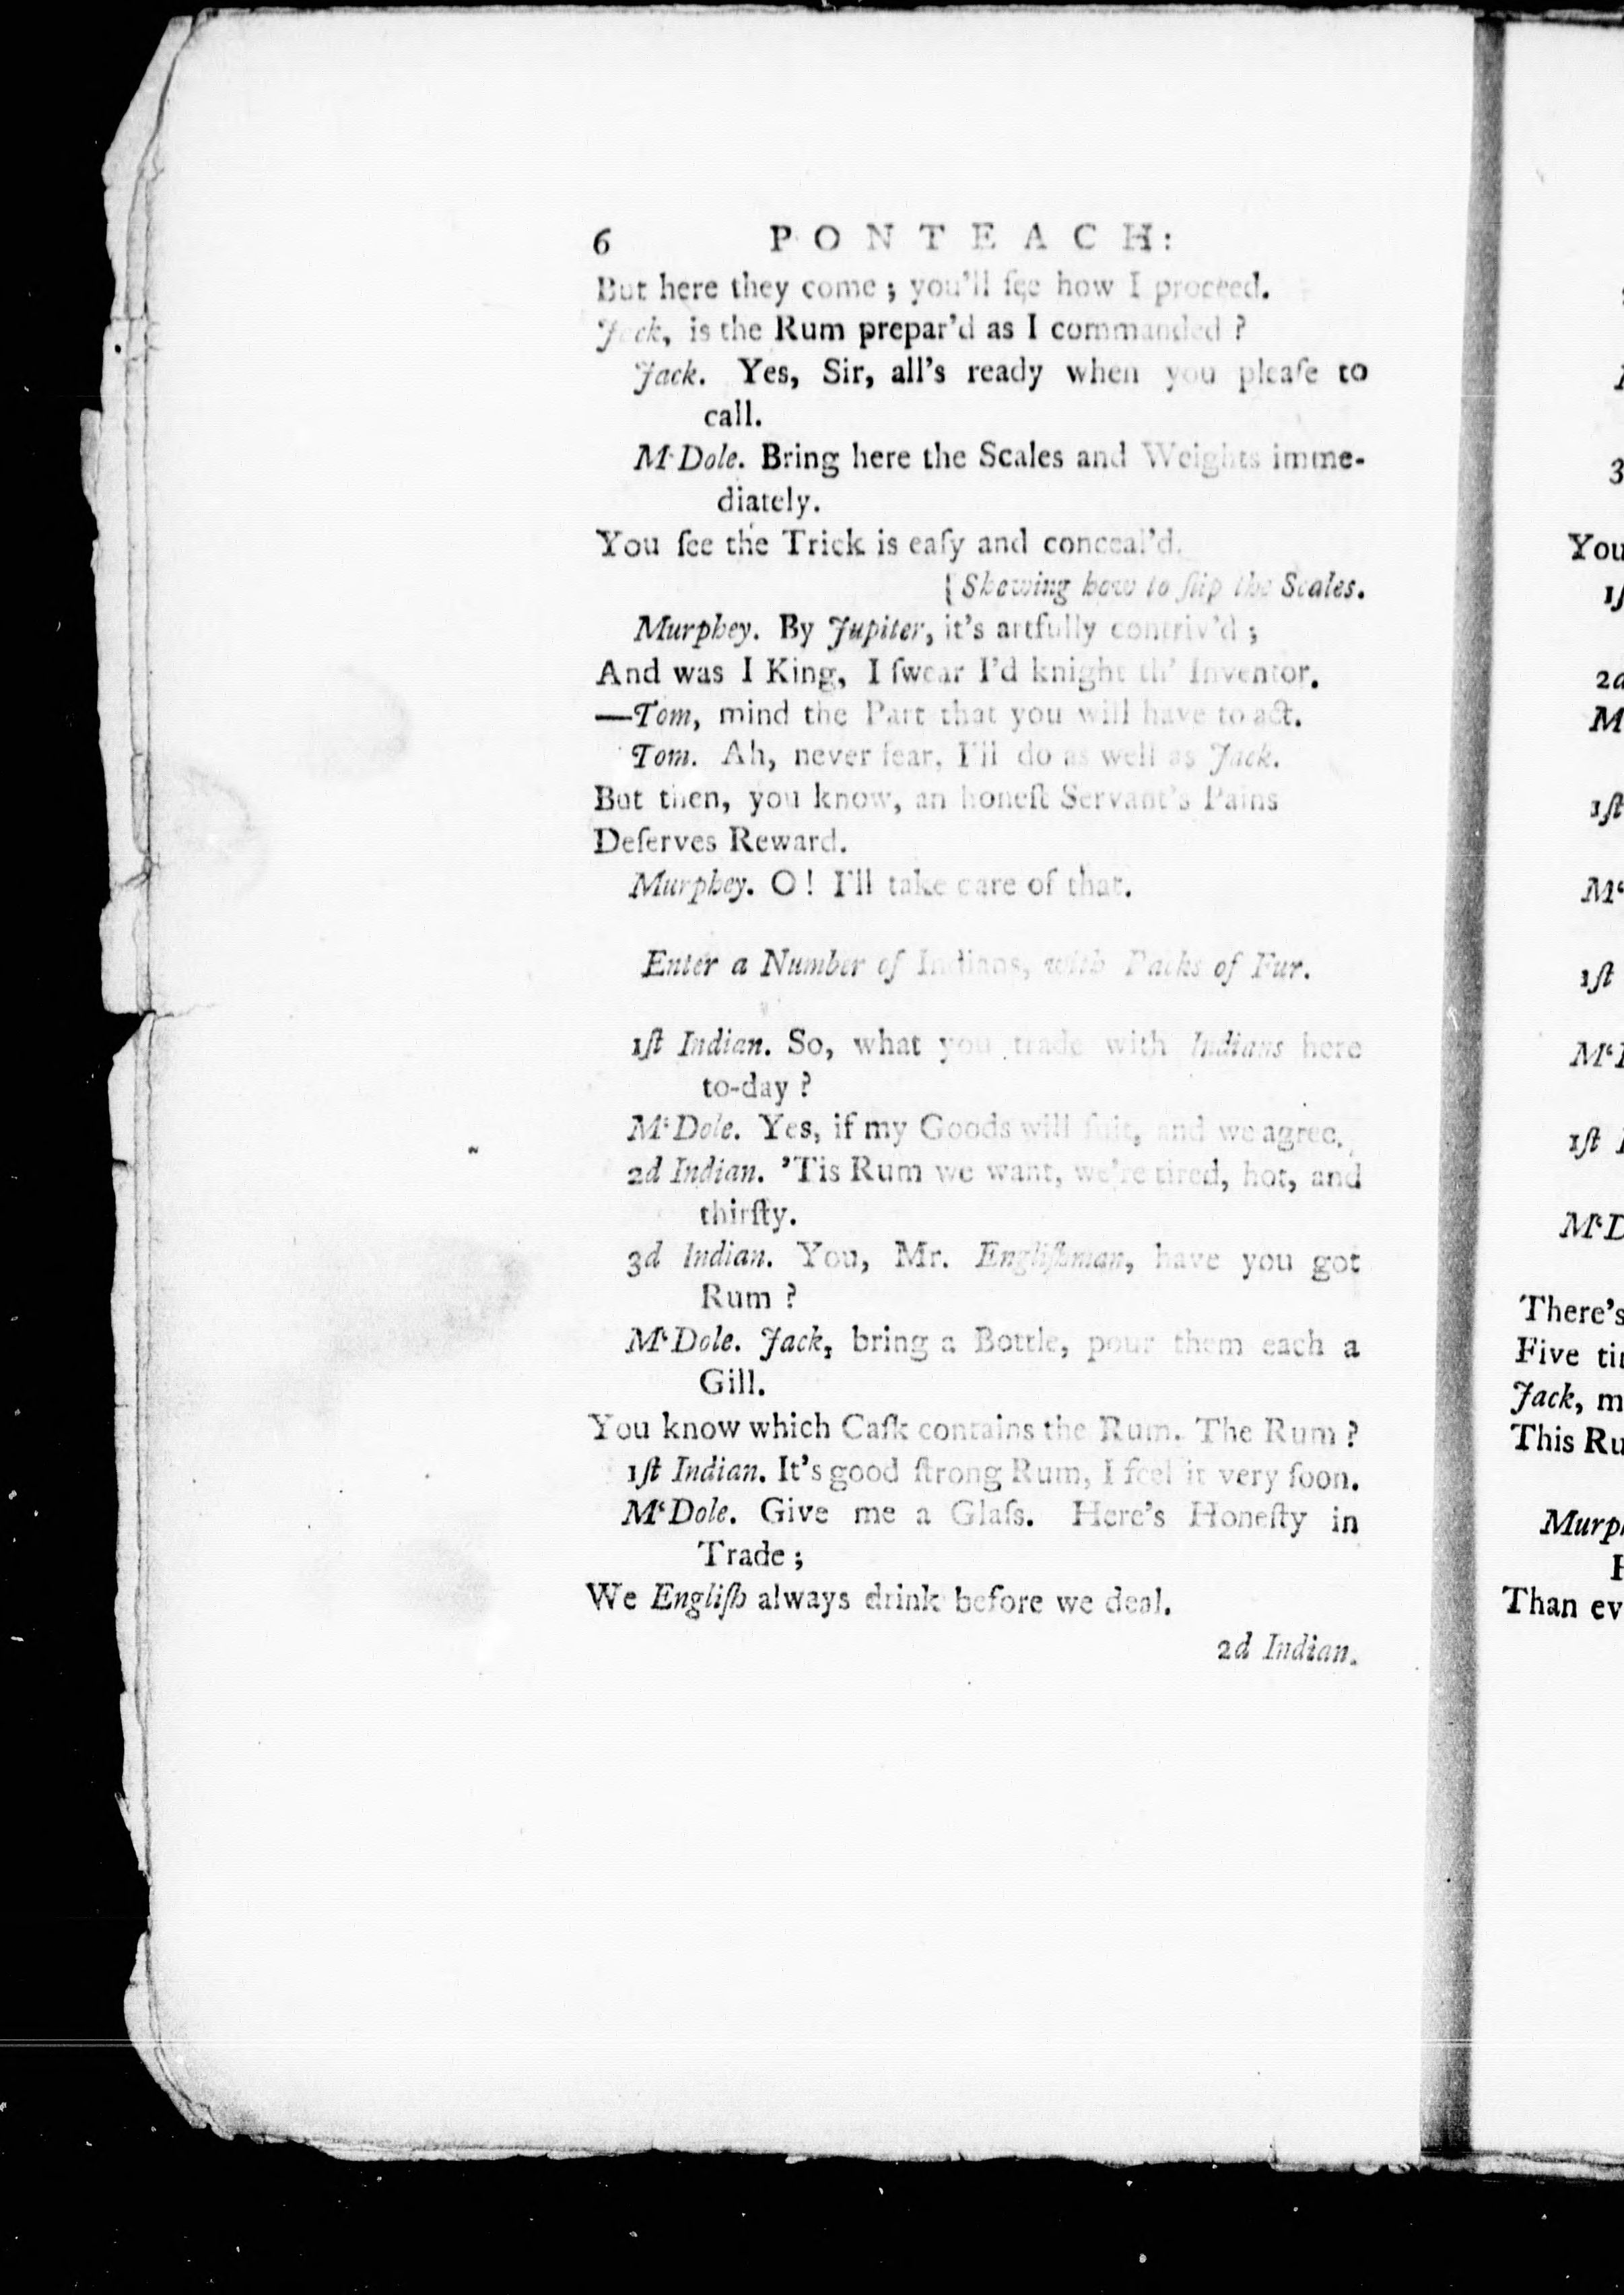 6 PONTEACH:
But here they come; you'll ſee how I proceed.
Jack, is the Rum prepar'd as I commanded?
Jack. Yes, Sir, all's ready when you pleaſe to
call.
McDole. Bring here the Scales and Weights imme-
diately.
You ſee the Trick is eaſy and conceal'd.
[Shewing how to ſlip the Scales.
Murphey. By Jupiter, it's artfully contriv'd;
And was I King, I ſwear I'd knight th' Inventor.
—Tom, mind the Part that you will have to act.
Tom. Ah, never fear, I'll do as well as Jack.
But then, you know, an honeſt Servant's Pains
Deſerves Reward.
Murphey. O! I'll take care of that.
Enter a Number of Indians, with Packs of Fur.
1ſt Indian. So, what you trade with Indians here
to-day?
McDole. Yes, if my Goods will ſuit, and we agree.
2d Indian. 'Tis Rum we want, we're tired, hot, and
thirſty.
3d Indian. You, Mr. Engliſhman, have you got
Rum?
McDole. Jack, bring a Bottle, pour them each a
Gill.
You know which Caſk contains the Rum. The Rum?
1ſt Indian. It's good ſtrong Rum, I feel it very ſoon.
McDole. Give me a Glaſs. Here's Honeſty in
Trade;
We Engliſh always drink before we deal.
2d Indian.
You
1ſt
There's
Five
Jack,
This
Than